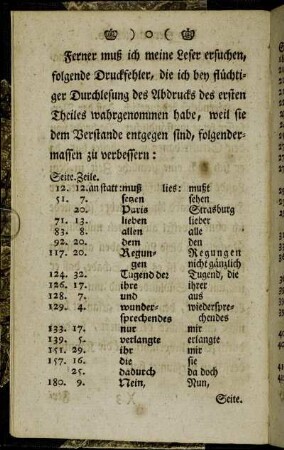 ) o (
Ferner muß ich meine Leser ersuchen,
folgende Druckfehler, die ich bey flüchti-
ger Durchlesung des Abdrucks des ersten
Theiles wahrgenommen habe, weil sie
dem Verstande entgegen sind, folgender-
massen zu verbessern:
Seite. Zeile.
12. 12. anstatt: muß lies: mußt
51. 7. setzen sehen
20. Paris Strasburg
71. 13. lieben lieber
83. 8. allen alle
92. 20. dem den
117. 20. Regun- Regungen
gen nicht gänzlich
124. 32. Tugend der Tugend, die
126. 17. ihre ihrer
128. 7. und aus
129. 4. wunder- wiederspre-
sprechendes chendes
133. 17. nur mir
139. 5. verlangte erlangte
151. 29. ihr mir
157. 16. die sie
25. dadurch da doch
180. 9. Nein, Nun,
Seite.